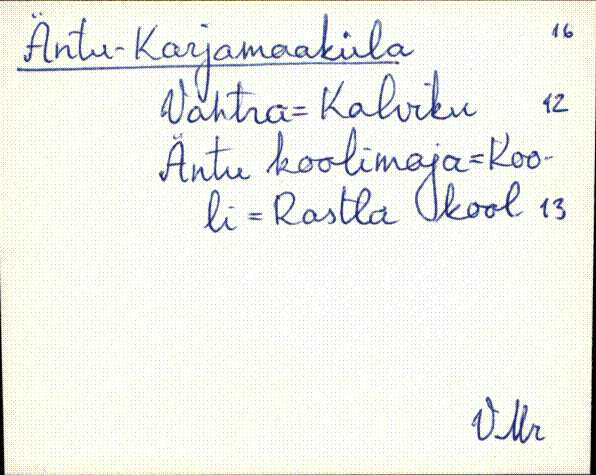 Äntu-Karjamaaküla 16
Vahtra = Kalviku 12
Äntu koolimaja = Koo-
li = Rastla kool 13
V.Mr